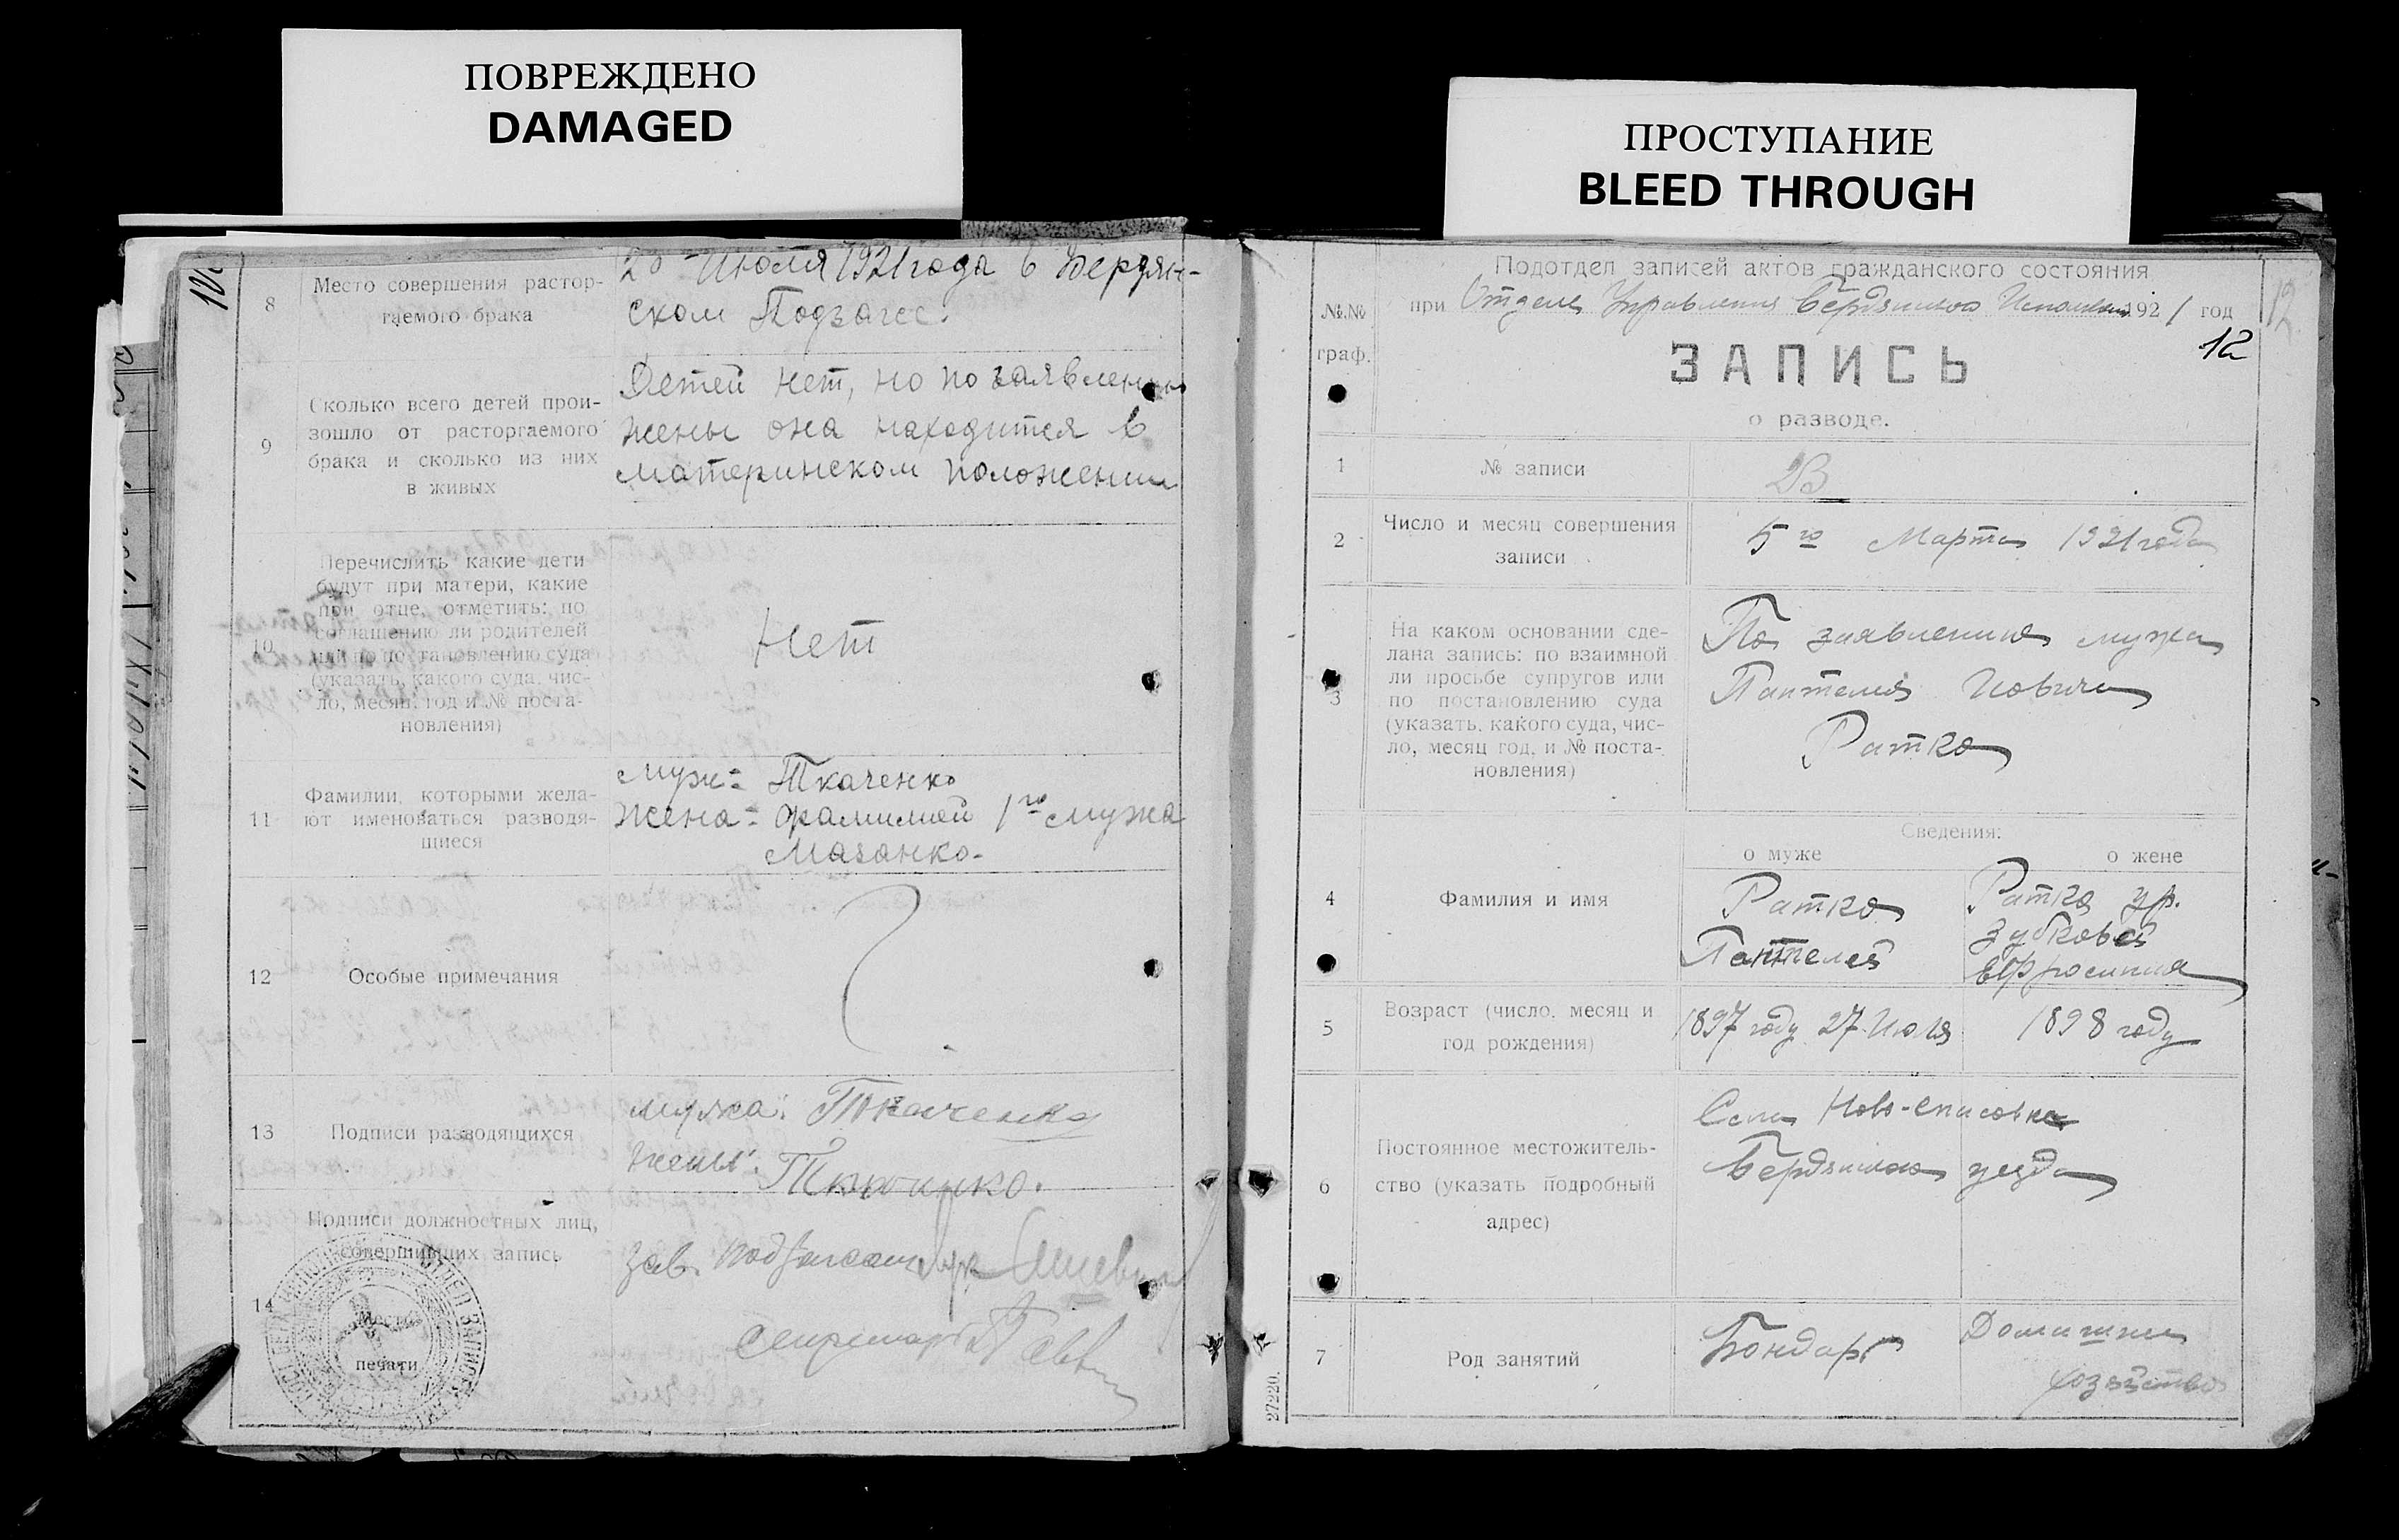 ПОВРЕЖДЕНО
DAMAGED
8
Место совершения растор-
гаемого брака
20 Июля 1921 года в Бердян-
ском Подзагсе.
9
Сколько всего детей прои-
зошло от расторгаемого
брака и сколько из них
в живых
Детей нет, но по заявлению
жены она находится в
материнском положении
10
Перечислить какие дети
будут при матери, какие
при отце, отметить: по
соглашению ли родителей
или по постановлению суда
(указать, какого суда, чис-
ло, месяц, год и № поста-
новления)
Нет
11
Фамилии, которыми жела-
ют именоваться разводя-
щиеся
Муж - Ткаченко
Жена - фамилией 1го мужа
Мазанко.
12
Особые примечания
13
Подписи разводящихся
мужа: Ткаченко
жены:
14
Подписи должностных лиц,
совершивших запись
Место
печати
Зав. Подзагсом
Секретарь
ПРОСТУПАНИЕ
BLEED THROUGH
12
№.№
граф.
Подотдел записей актов гражданского состояния
при Отделе Управления Бердянского 1921 год
12
ЗАПИСЬ
о разводе.
1
№ записи
2
Число и месяц совершения
записи
5го Марта 1921 года
3
На каком основании сде-
лана запись: по взаимной
ли просьбе супругов или
по постановлению суда
(указать, какого суда, чис-
ло, месяц год, и № поста-
новления)
По заявлению мужа
Пантелея
Ратко
Сведения:
о муже
о жене
4
Фамилия и имя
Ратко
Пантелей
Ратко ур.
Зубковей
Ефросиния
5
Возраст (число, месяц и
год рождения)
1897 году 27 Июля
1898 году
6
Постоянное местожитель-
ство (указать подробный
адрес)
Село Ново-спасовка
Бердянского уезда
7
Род занятий
Бондарь
Домашнее
хозяйство
27220.